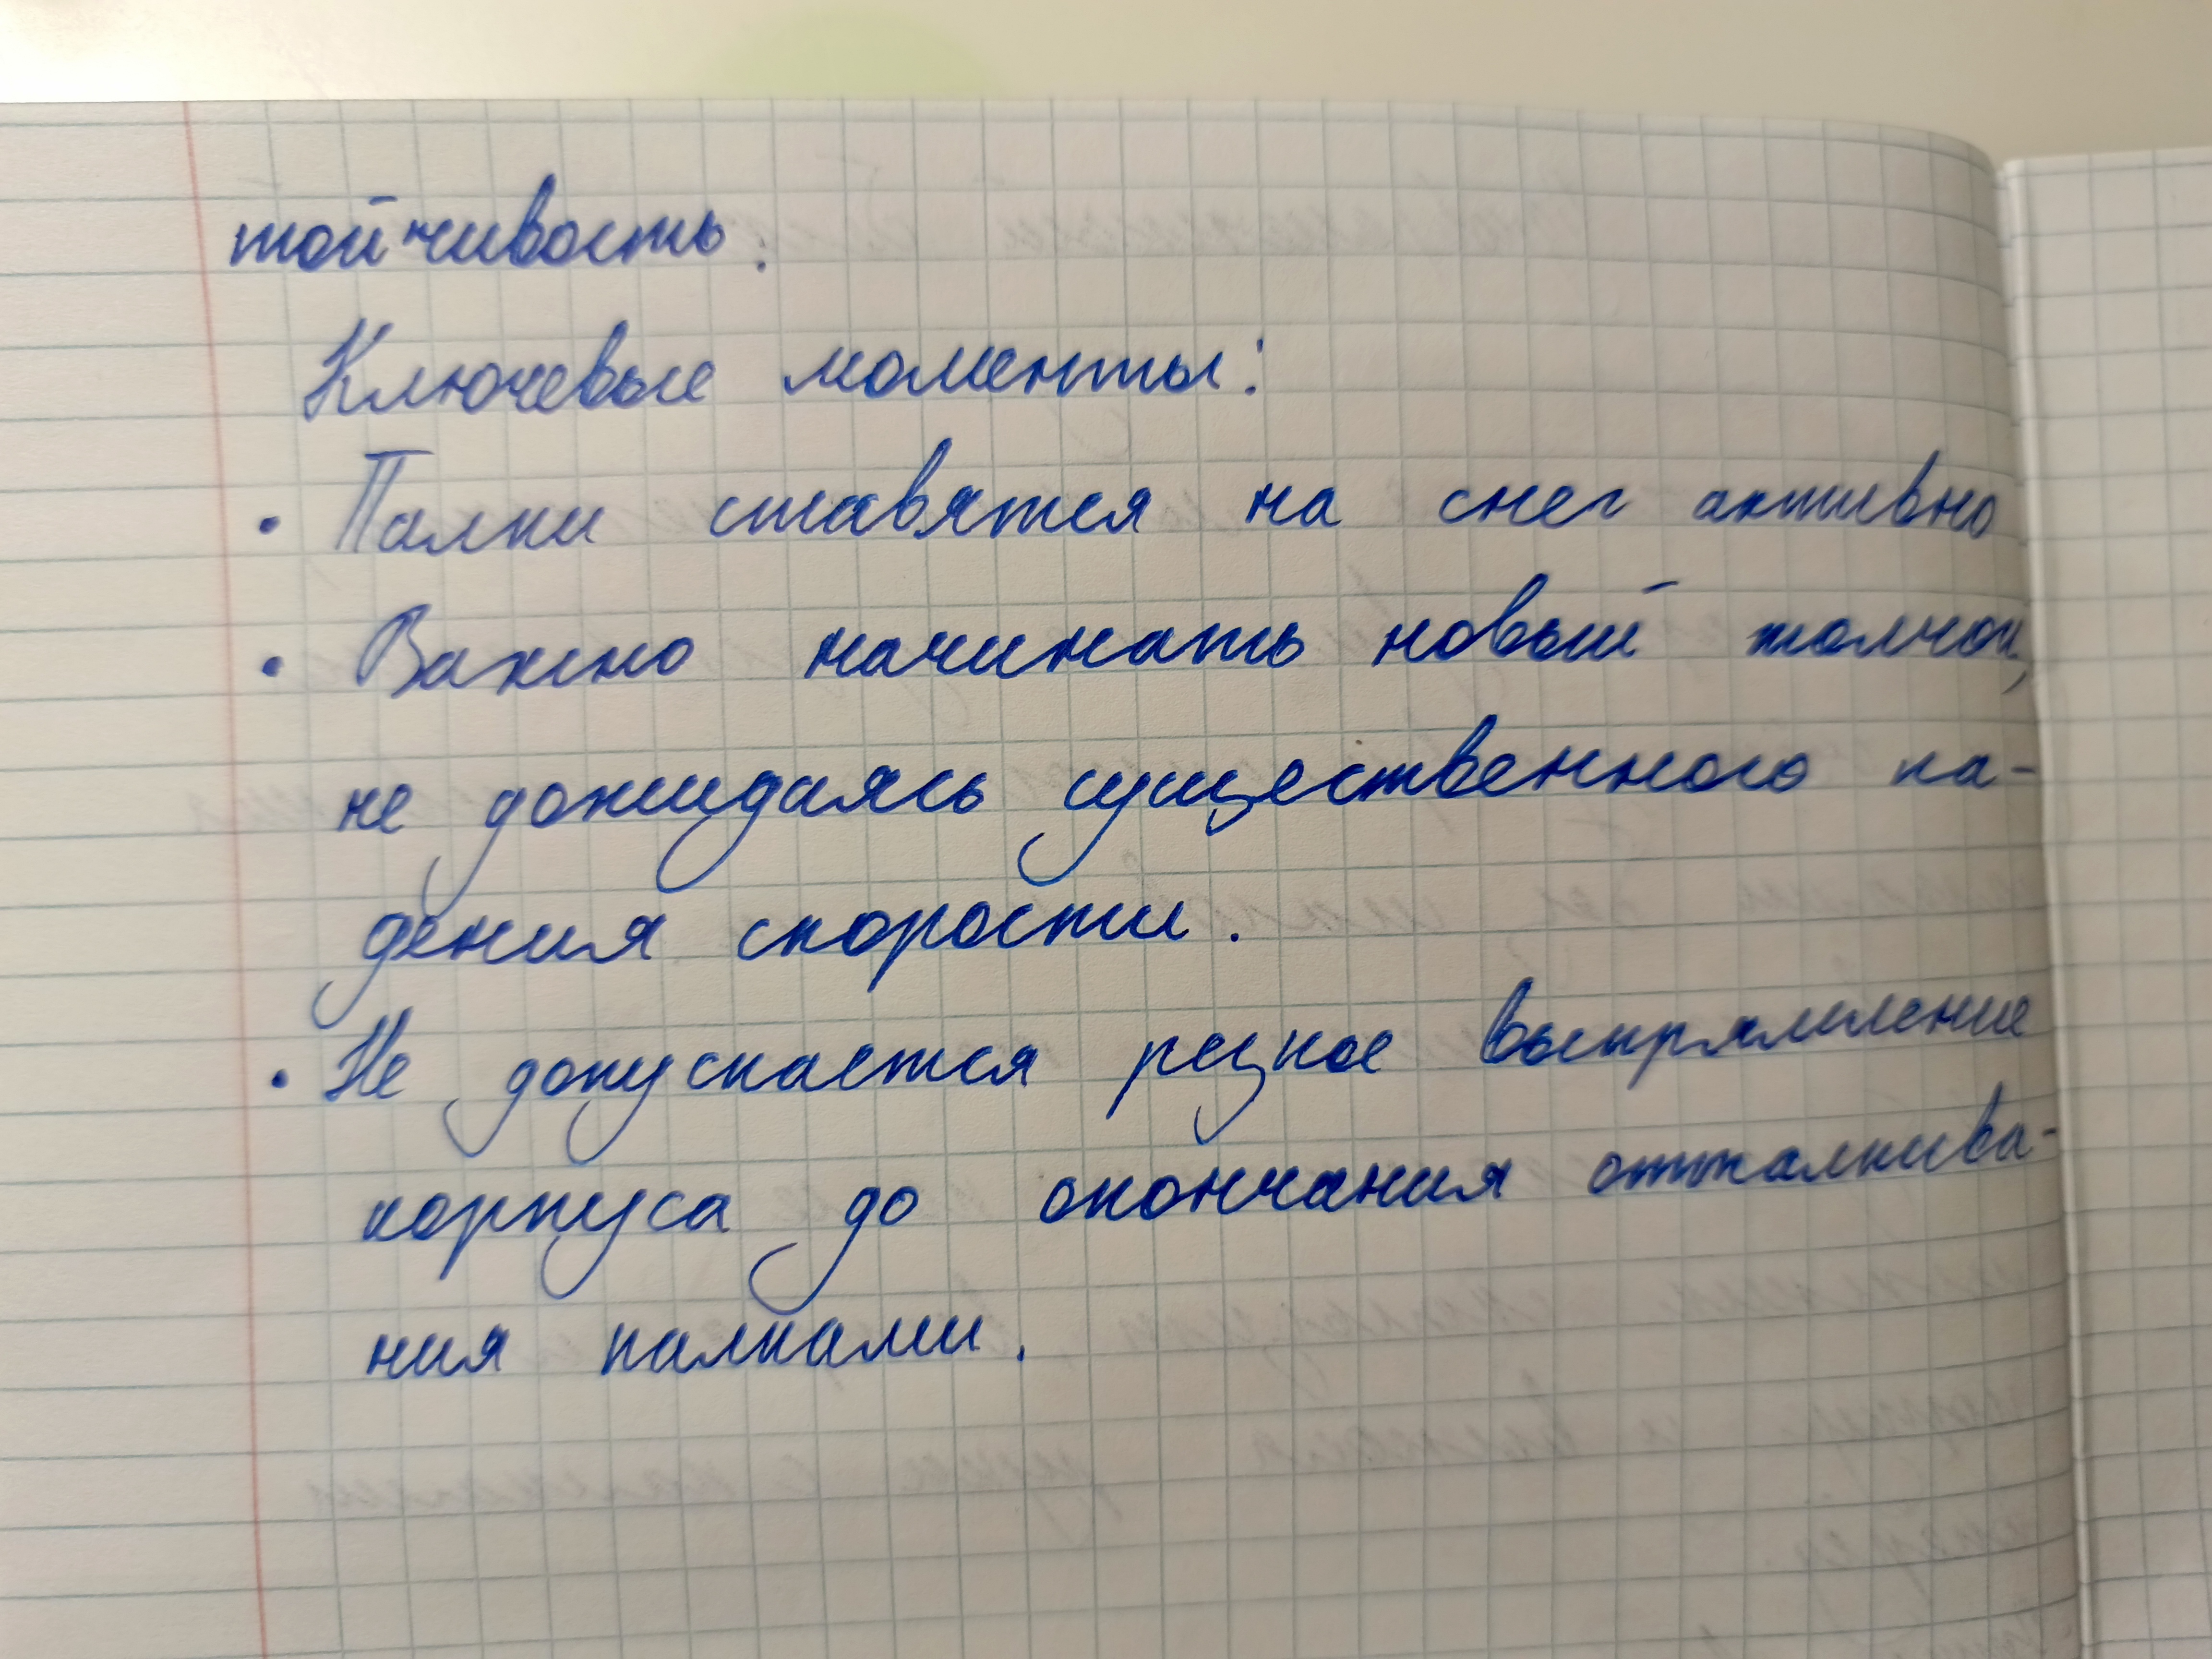 тойчивость.
Ключевые моменты:
• Палки ставятся на снег активно
• Важно начинать новый толчок,
не дожидаясь существенного па-
дения скорости.
• Не допускается резкое выпрямление
корпуса до окончания отталкива-
ния палками.